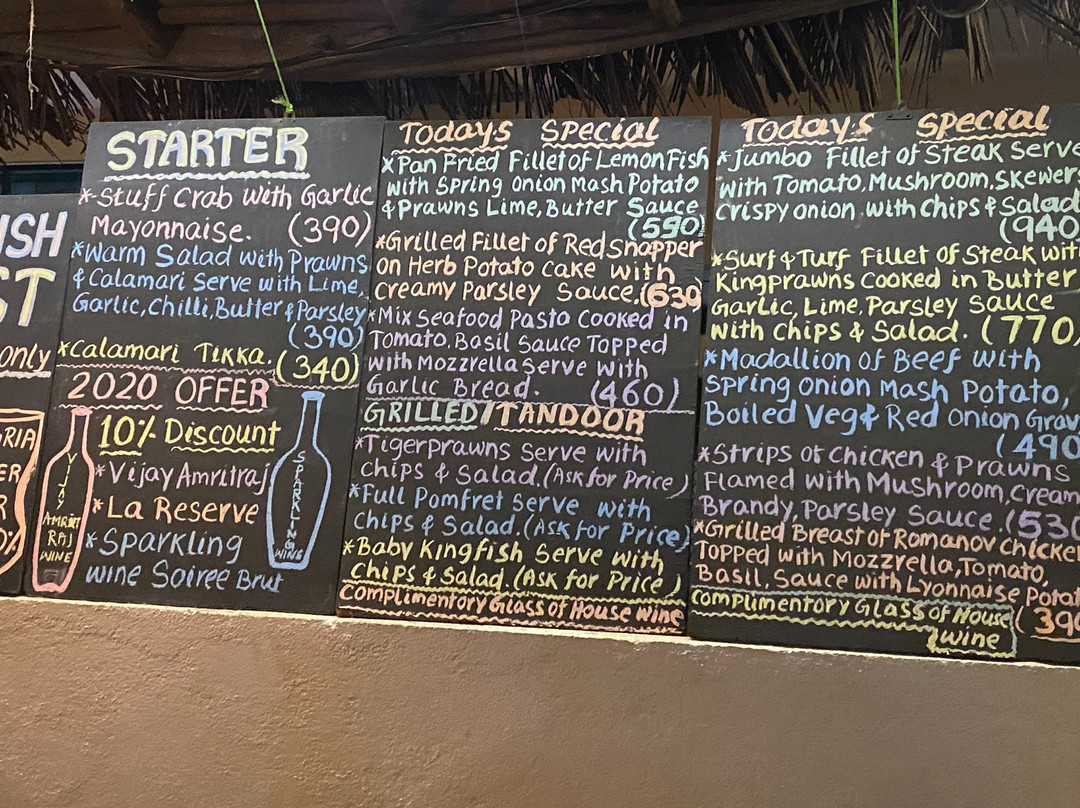 ISH
ST
only
RIA
ER
R
0%
STARTER
*Stuff Crab with Garlic
Mayonnaise. (390)
*Warm Salad with Prawns
& Calamari Serve with Lime,
Garlic, Chilli, Butter & Parsley
(390)
*Calamari Tikka. (340)
2020 OFFER
10% Discount
*Vijay Amritraj
*La Reserve
*Sparkling
wine Soiree Brut
VIJAY
AMRIT
RAJ
WINE
SPARKLING
WINE
Todays Special
*Pan Fried Fillet of Lemon Fish
with Spring Onion Mash Potato
& Prawns Lime, Butter Sauce
(590)
*Grilled Fillet of Red Snapper
on Herb Potato Cake with
Creamy Parsley Sauce. (630
*Mix Seafood Pasta Cooked in
Tomato, Basil Sauce Topped
with Mozzrella Serve with
Garlic Bread. (460)
GRILLED/TANDOOR
*Tigerprawns Serve with
Chips & Salad. (Ask for Price)
*Full Pomfret Serve with
Chips & Salad. (Ask for Price)
*Baby Kingfish Serve with
Chips & Salad. (Ask for Price)
Complimentory Glass of House Wine
Todays Special
*Jumbo Fillet of Steak Serve
with Tomato, Mushroom, Skewers
Crispy onion with Chips & Salad
(940
*Surf & Turf Fillet of Steak with
Kingprawns Cooked in Butter
Garlic, Lime, Parsley Sauce
with Chips & Salad. (770)
*Madallion of Beef with
Spring onion Mash Potato,
Boiled Veg & Red Onion Grav
(490
*Strips of Chicken & Prawns
Flamed with Mushroom, Cream
Brandy, Parsley Sauce. (530
*Grilled Breast of Romanov Chicken
Topped with Mozzrella, Tomato,
Basil. Sauce with Lyonnaise Potat
Complimentory Glass of House (390
Wine